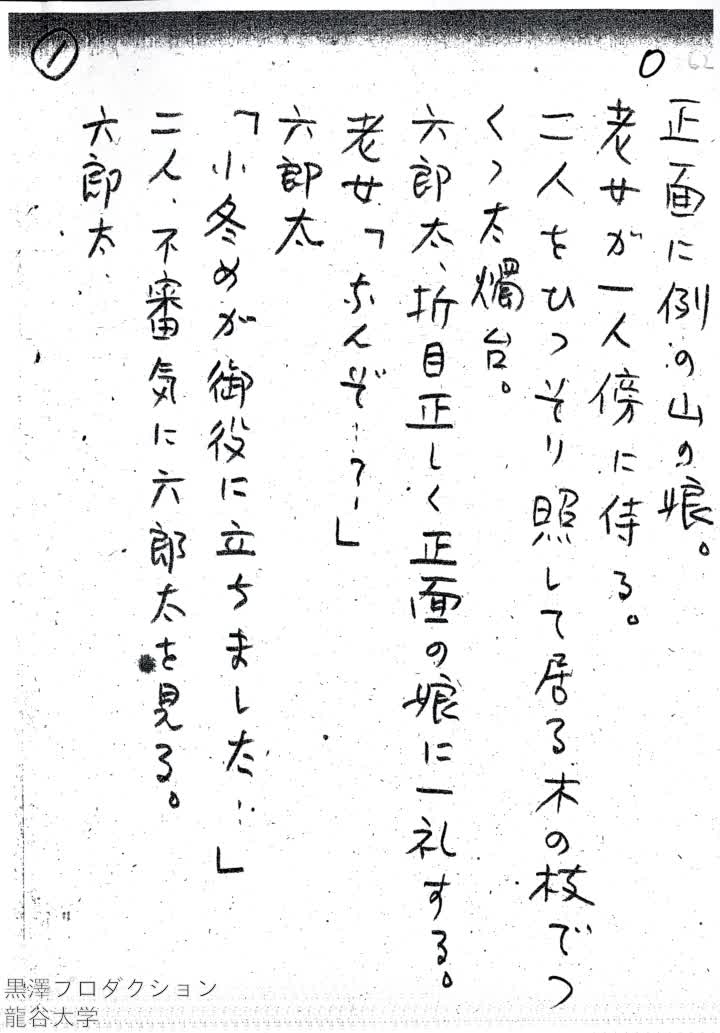 正面に例の山の娘。
老女が一人傍に侍る。
二人をひっそり照して居る木の枝でつ
くった燭台。
六郎太、折目正しく正面の娘に一礼する。
老女「なんぞ‥？‥」
六郎太
「小冬めが御役に立ちました‥」
二人、不審気に六郎太を見る。
六郎太
①
0
62
黒澤プロダクション
龍谷大学